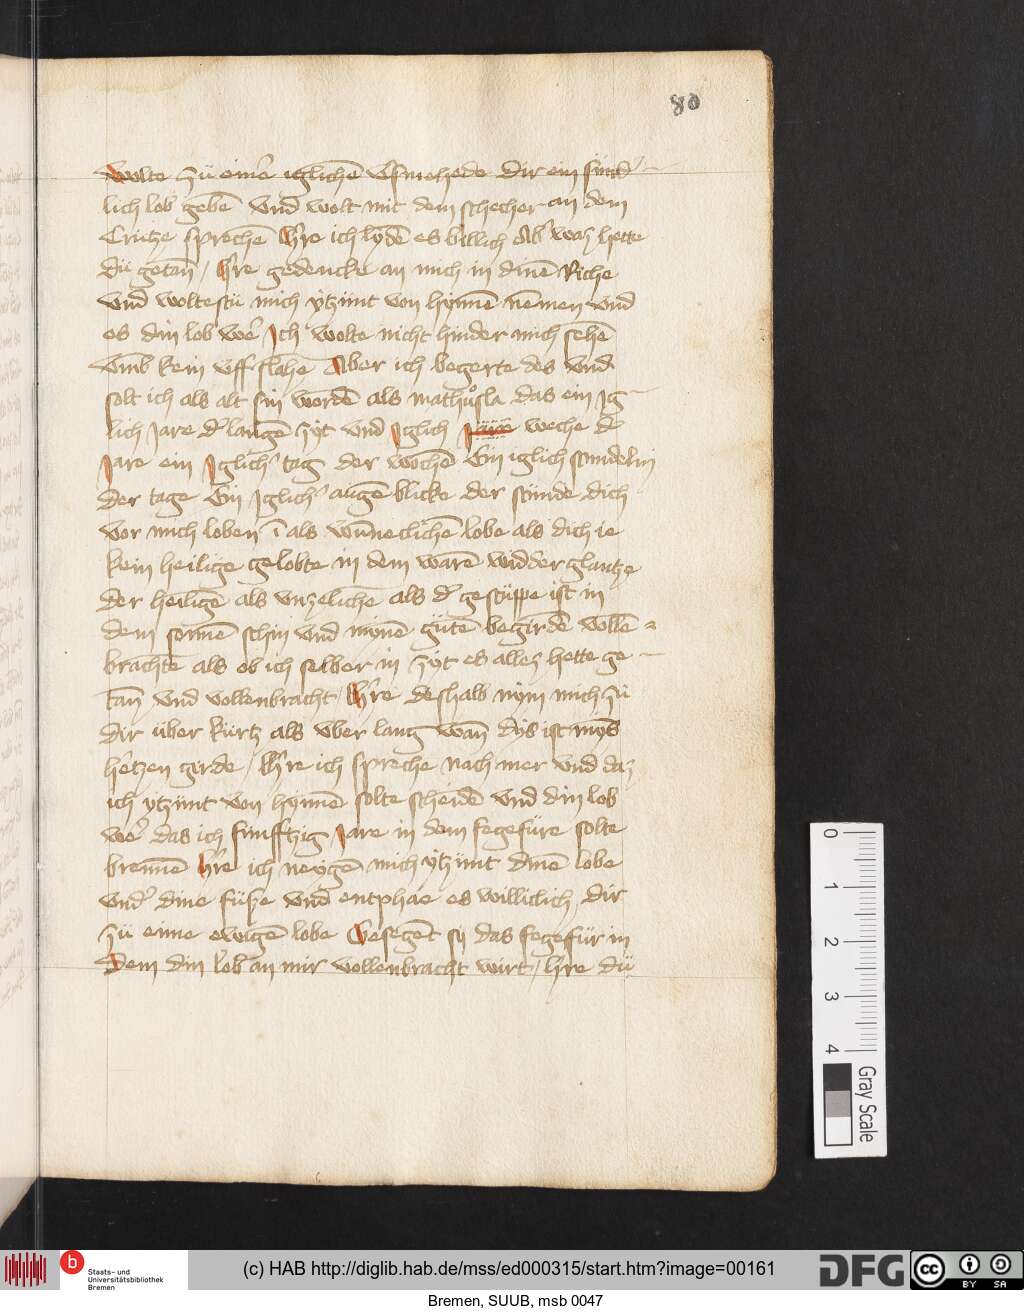 80
wolte zü eimē iglichē Vsmehede dir ein sünd
lich lob gebē vnd wolt mit dem schecher an dem
Critze sprechē h're ich lydē es billich Ab' waz hette
dü getan / h're gedencke an mich in dinē Riche
vnd woltestü mich ytzünt von hynnē nēmen vnd
es din lob we'r Ich wolte nicht hinder mich sehē
vmb kein vff slahē Aber ich begerte des vnd
solt ich als alt sin wordē als mathůsla das ein Ig
lich Jare d' langē zyt vnd Iglich weche d'
Jare ein Iglich' tag der wochē Ein iglich stundelin
der tage Ein Iglich' augē blicke der stünde dich
vor mich loben ī als wūneclichē lobe als dich ie
kein heilige gelobte in dem warē widder glantze
der heiligē als vnzelichē als d' gestüppe ist in
dem sonnē schin vnd mynē gütē begirdē vollē
brachtē als ob ich selber in zyt es allez hette ge
tan vnd vollenbracht / h're deshalb nym mich zü
dir über kürtz als vber lang wan dys ist myns
hertzen girde / h're ich spreche nach mer vnd daz
ich ytzünt von hynnē solte scheidē vnd din lob
we'r das ich fünfftzig Jare in dem fegefüre solte
brennē h're ich neygē mich ytzünt dinē lobe
vnd' dine füsze vnd entphae es williclich dir
zü eime ewigē lobe Gesegēt sy das fegefür in
Dem din lob an mir vollenbracht wirt / h're dü
0
1
2
3
4
Gray Scale
b
Staats- und
Universitätsbibliothek
Bremen
(c) HAB http://diglib.hab.de/mss/ed000315/start.htm?image=00161
DFG
cc BY SA
Bremen, SUUB, msb 0047